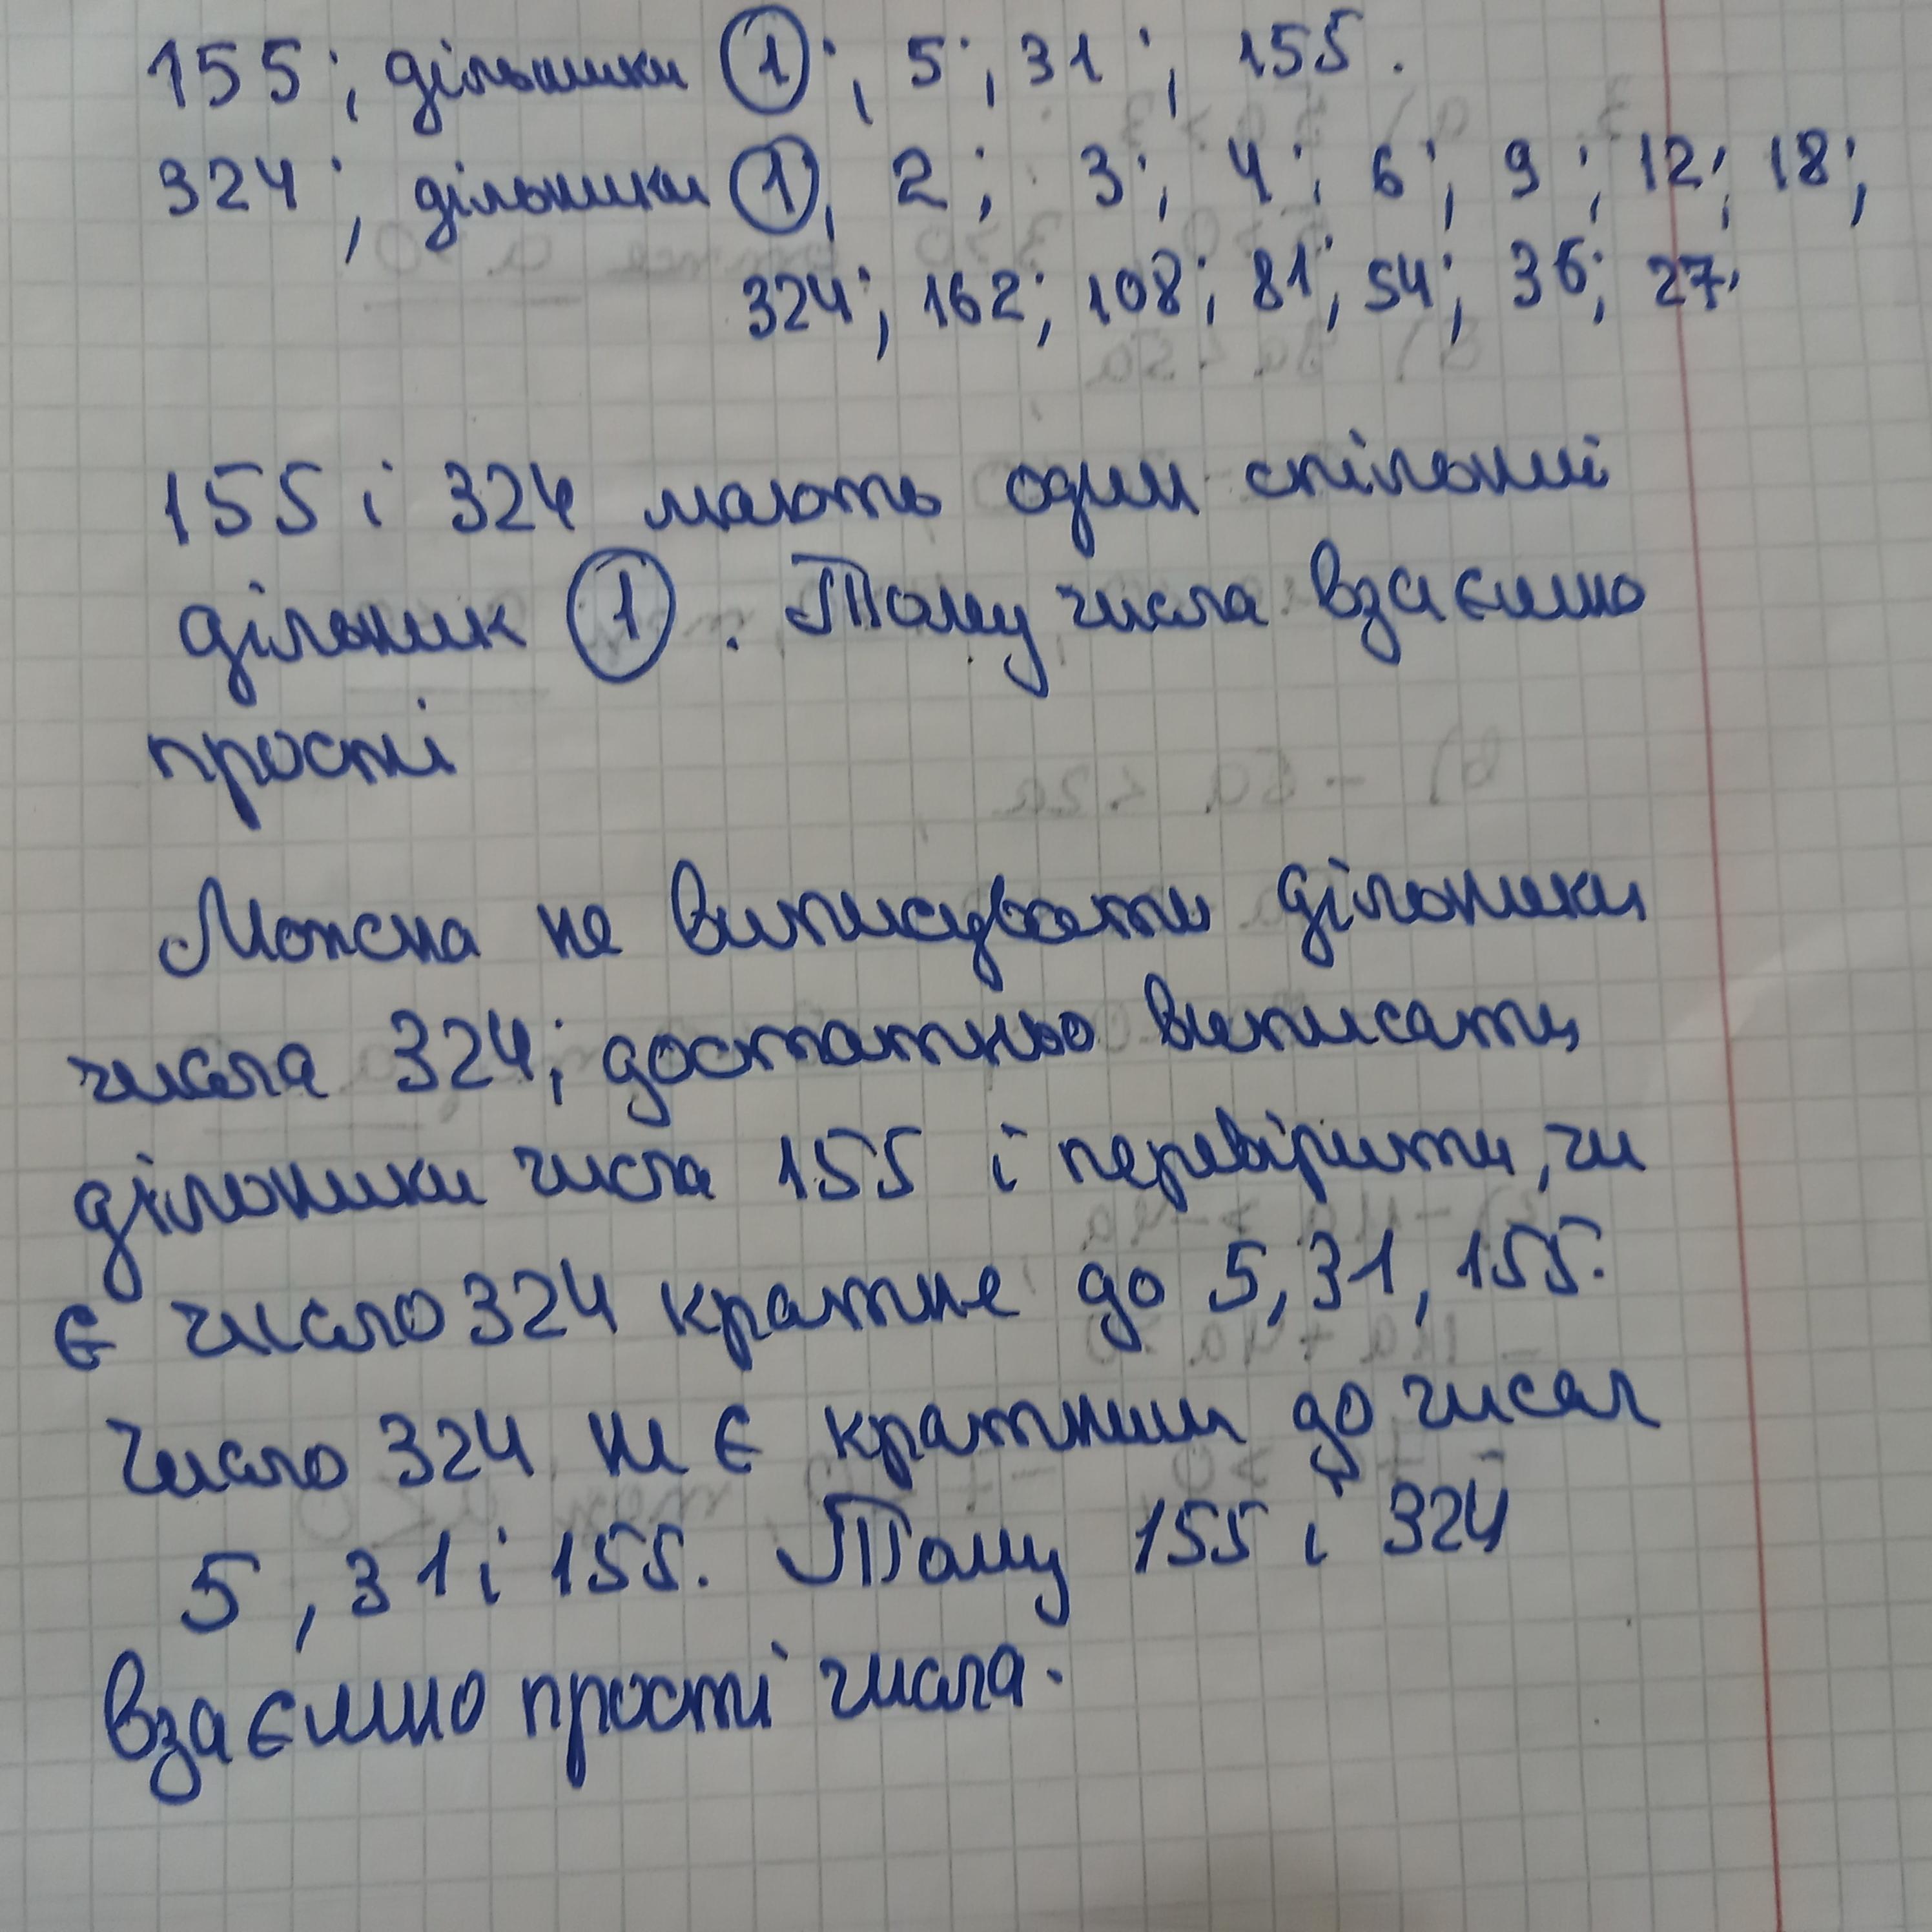 155; дільники 1; 5; 31; 155.
324; дільники 1, 2; 3; 4; 6; 9; 12; 18;
324; 162; 108; 81; 54; 36; 27.
155 і 324 мають один спільний
дільник 1. Тому числа взаємно
прості
Можна не виписувати дільники
числа 324; достатньо виписати
дільники числа 155 і перевірити, чи
є число 324 кратне до 5, 31, 155.
Число 324 не є кратним до чисел
5, 31 і 155. Тому 155 і 324
взаємно прості числа.